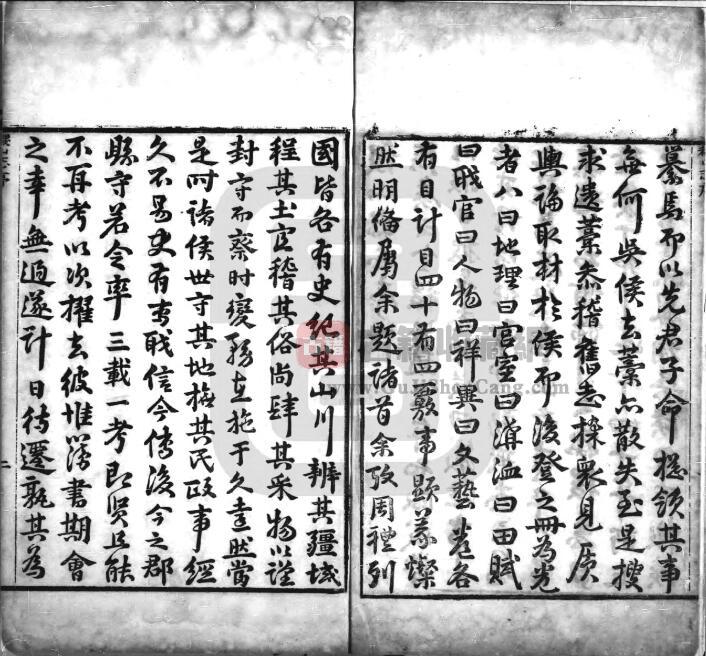 纂焉而以先君子命摠領其事
無何吳侯去藁亦散失至是搜
求遺藁叅稽舊志採衆見質
輿論取材於侯而後登之冊為卷
者八曰地理曰官室曰溝洫曰田賦
曰戝官曰人物曰祥異曰文藝卷各
有目計目四十有四敷事顯義燦
然明俻屬余題諸首余攷周禮列
國皆各有史紀其山川辨其疆域
程其土宜稽其俗尚肆其采物以謹
封守而察時變務在施于久遠然當
是時諸侯世守其地擅其民政事經
久不易史有專戝信今傳後今之郡
縣守若令率三載一考即賢且能
不再考以次擢去彼惟以簿書期會
之幸無過遂計日待遷孰其為
二
古籍收藏網